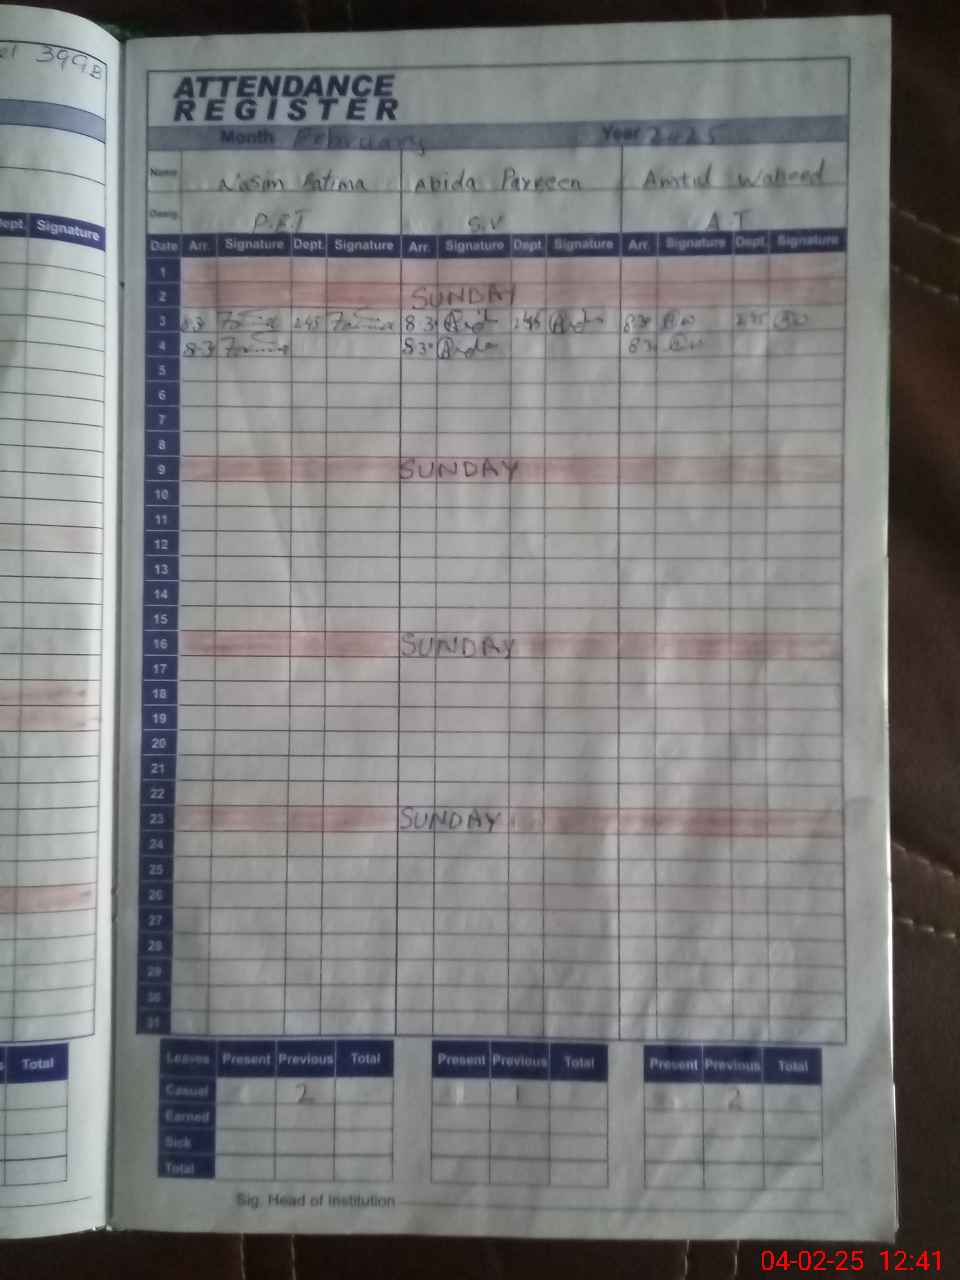 399B
ATTENDANCE
REGISTER
Month February Year 2025
Name Nasim Fatima Abida Parveen Amtul Waheed
Desig. P.E.T S.V A.T
Dept. Signature
Date Arr. Signature Dept. Signature Arr. Signature Dept. Signature Arr. Signature Dept. Signature
1
2 SUNDAY
3 8.30 Fatima 2.45 Fatima 8.30 2.45 8.30 2.45
4 8.30 Fatima 8.30 8.30
5
6
7
8
9 SUNDAY
10
11
12
13
14
15
16 SUNDAY
17
18
19
20
21
22
23 SUNDAY
24
25
26
27
28
29
30
31
Total
Leaves Present Previous Total Present Previous Total Present Previous Total
Casual 2 1 2
Earned
Sick
Total
Sig. Head of Institution
04-02-25 12:41